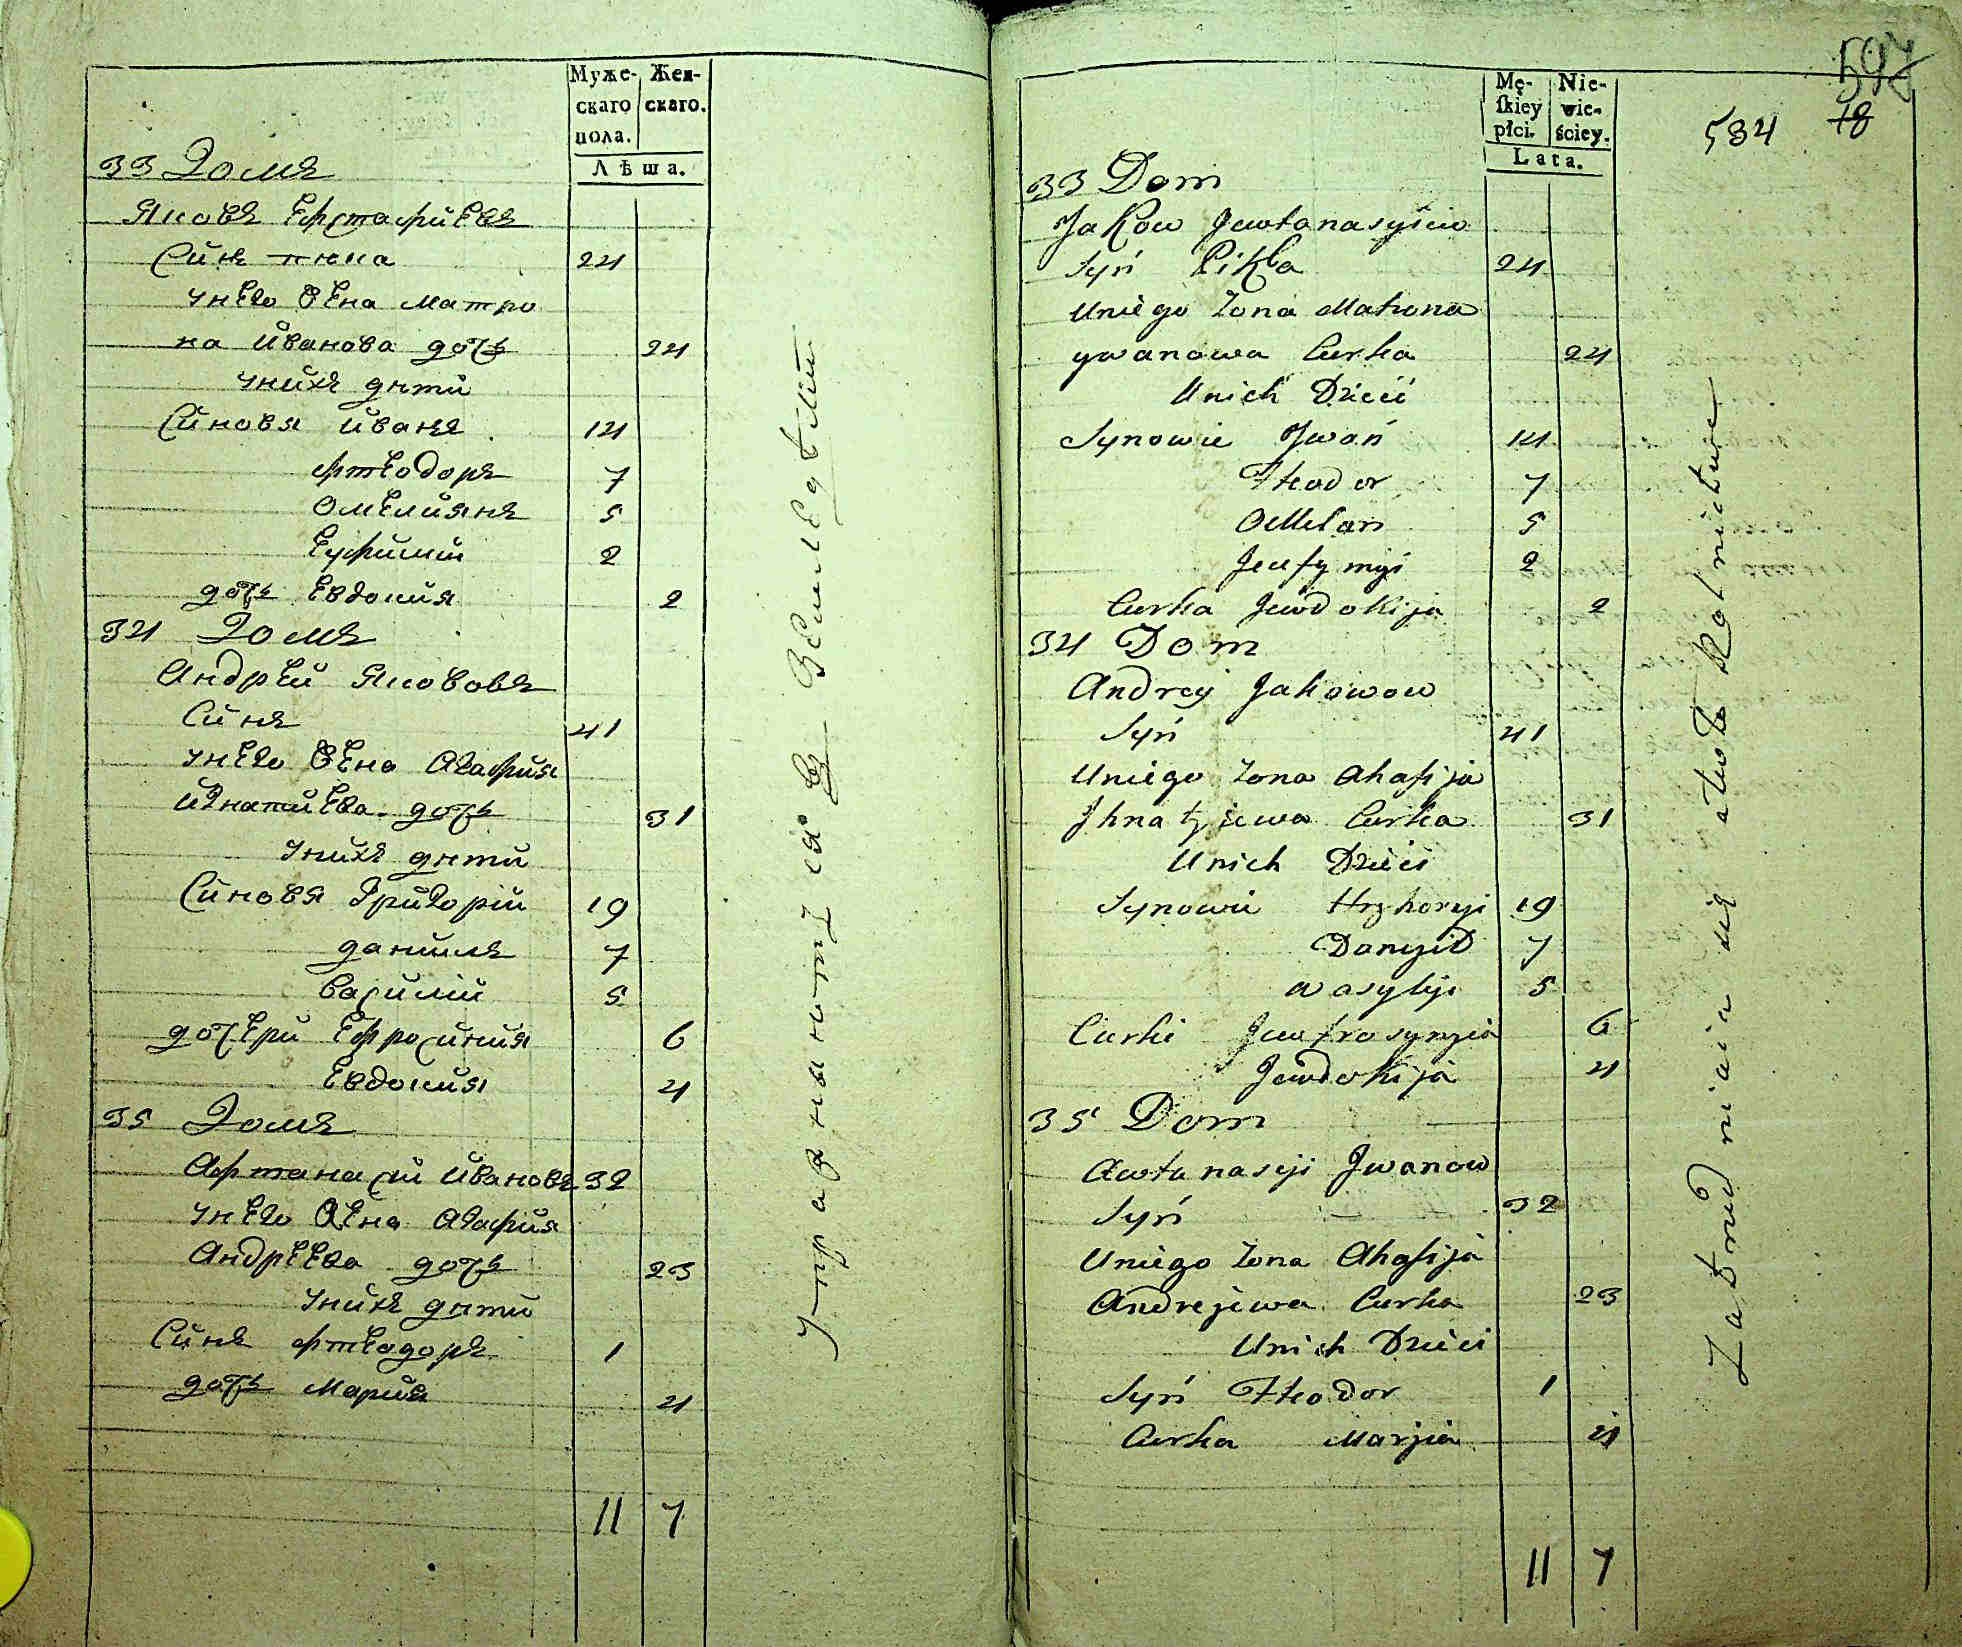 Муже-
скаго
пола.
Жен-
скаго.
Лѣта.
33 Домъ
Яковъ Ефтафиѣвъ
Синъ пика 24
унего жена Матро
на Иванова дочь 24
унихъ дѣти
Синовя Иванъ 14
Фтеодоръ 7
Омелиянъ 5
Еуфимїй 2
дочь Евдокия 2
34 Домъ
Андрей Якововъ
Синъ 41
унего жена Агафия
Игнатиева дочь 31
унихъ дѣти
Синовя Григорїй 19
данилъ 7
Василїй 5
дочери Ефросиния 6
Евдокия 4
35 Домъ
Афтанасїй Ивановъ 32
унего жена Агафия
Андреева дочь 23
унихъ дѣти
Синъ Фтеодоръ 1
дочь Мария 4
11 7
Mę-
ſkiey
płci.
Nie-
wie-
ściey.
Lata.
597
534 78
33 Dom
Jakow Jewtanasyiew
Syń Pikła 24
Uniego Zona Matrona
ywanowa Curka 24
Unich Dzieci
Synowie Jwań 14
Fteodor 7
OMelan 5
Jeufymyi 2
Curka Jewdokija 2
34 Dom
Andrey Jakowow
Syń 41
Uniego Zona Ahafija
Jhnatyiewa Curka 31
Unich Dzieci
Synowie Hryhoryi 19
Danyiło 7
Wasylyi 5
Curki Jewfrosynyia 6
Jewdokija 4
35 Dom
Awtanasyi Jwanow
Syń 32
Uniego Zona Ahafija
Andrejewa Curka 23
Unich Dzieci
Syń Fteodor 1
Curka Marjia 4
11 7